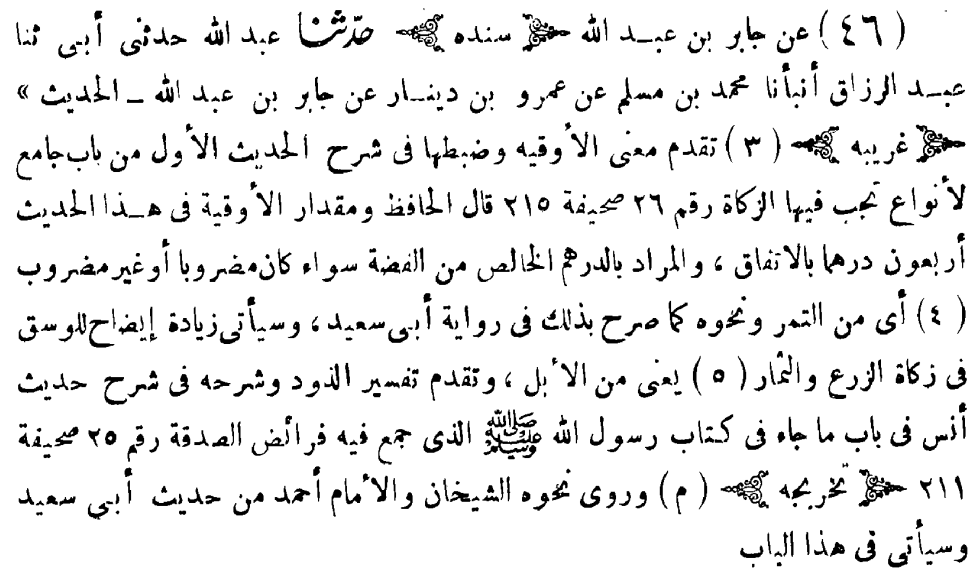 ( ٤٦ ) عن جابر بن عبد الله ﴿ سنده ﴾ حدّثنا عبد الله حدثنى أبى ثنا
عبد الرزاق أنبأنا محمد بن مسلم عن عمرو بن دينار عن جابر بن عبد الله ـ الحديث »
﴿ غريبه ﴾ ( ٣ ) تقدم معنى الأوقيه وضبطها فى شرح الحديث الأول من باب جامع
لأنواع تجب فيها الزكاة رقم ٢٦ صحيفة ٢١٥ قال الحافظ ومقدار الأوقية فى هذا الحديث
أربعون درهما بالاتفاق ، والمراد بالدرهم الخالص من الفضة سواء كان مضروبا أو غير مضروب
( ٤ ) أى من التمر ونحوه كما صرح بذلك فى رواية أبى سعيد ، وسيأتى زيادة إيضاح للوسق
فى زكاة الزرع والثمار ( ٥ ) يعنى من الأبل ، وتقدم تفسير الذود وشرحه فى شرح حديث
أنس فى باب ما جاء فى كتاب رسول الله ﷺ الذى جمع فيه فرائض الصدقة رقم ٢٥ صحيفة
٢١١ ﴿ تخريجه ﴾ ( م ) وروى نحوه الشيخان والأمام أحمد من حديث أبي سعيد
وسيأتي فى هذا الباب